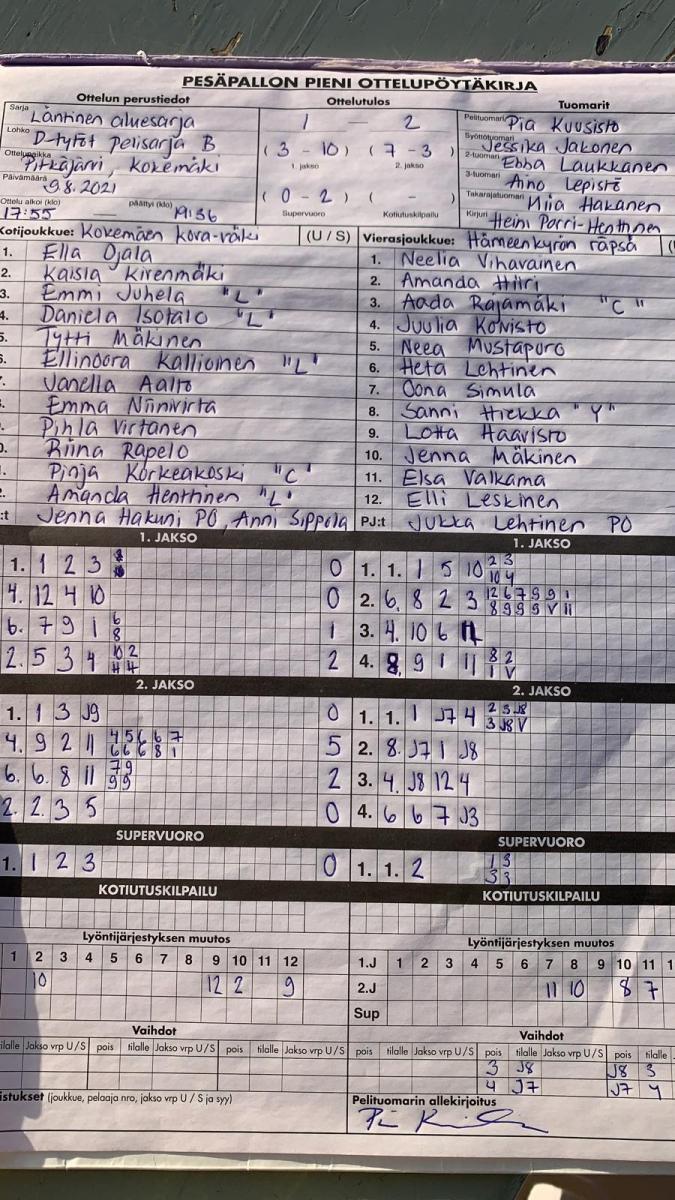 PESÄPALLON PIENI OTTELUPÖYTÄKIRJA
Ottelun perustiedot Ottelutulos Tuomarit
Sarja Läntinen aluesarja 1 — 2 Pelituomari Pia Kuusisto
Lohko D-tytöt pelisarja B Syöttötuomari Jessika Jakonen
Ottelupaikka Pitkäjärvi, Kokemäki (3 - 10) (7 - 3) 2-tuomari Ebba Laukkanen
1. jakso 2. jakso
Päivämäärä 9.8.2021 3-tuomari Aino Lepistö
(0 - 2) ( - ) Takarajatuomari Miia Hakanen
Ottelu alkoi (klo) 17:55 — päättyi (klo) 19:36 Supervuoro Kotiutuskilpailu Kirjuri Heini Porri-Henttinen
Kotijoukkue: Kokemäen Kova-Väki (U / S) Vierasjoukkue: Hämeenkyrön räpsä
1. Ella Ojala 1. Neelia Vihavainen
2. Kaisla Kirenmäki 2. Amanda Hiiri
3. Emmi Juhela "L" 3. Aada Rajamäki "C"
4. Daniela Isotalo "L" 4. Juulia Koivisto
5. Tytti Mäkinen 5. Neea Mustapuro
6. Ellinoora Kallioinen "L" 6. Heta Lehtinen
Vanella Aalto 7. Oona Simula
Emma Niinivirta 8. Sanni Hiekka "Y"
Pihla Virtanen 9. Lotta Haavisto
Riina Rapelo 10. Jenna Mäkinen
Pinja Korkeakoski "C" 11. Elsa Valkama
Amanda Henttinen "L" 12. Elli Leskinen
:t Jenna Hakuni PO, Anni Sippola PJ:t Jukka Lehtinen PO
1. JAKSO 1. JAKSO
1. 1 2 3 0 1. 1. 1 5 10 2 3
10 4
4. 12 4 10 0 2. 6. 8 2 3 12 6 7 9 9 1
8 9 9 9 V 11
6. 7 9 1 6 1 3. 4. 10 6 11
8
2. 5 3 4 10 2 2 4. 8. 9 1 11 8 2
11 4 1 V
2. JAKSO 2. JAKSO
1. 1 3 J9 0 1. 1. 1 J7 4 2 3 J8
3 J8 V
4. 9 2 11 4 5 6 6 7 5 2. 8. J7 1 J8
6 6 6 8 1
6. 6. 8 11 7 9 2 3. 4. J8 12 4
9 9
2. 2. 3 5 0 4. 6 6 7 J3
SUPERVUORO SUPERVUORO
1. 1 2 3 0 1. 1. 2 1 3
3 3
KOTIUTUSKILPAILU KOTIUTUSKILPAILU
Lyöntijärjestyksen muutos Lyöntijärjestyksen muutos
1 2 3 4 5 6 7 8 9 10 11 12 1.J 1 2 3 4 5 6 7 8 9 10 11
10 12 2 9 2.J 11 10 8 7
Sup
Vaihdot Vaihdot
tilalle Jakso vrp U / S pois tilalle Jakso vrp U / S pois tilalle Jakso vrp U / S pois tilalle Jakso vrp U / S pois tilalle Jakso vrp U / S pois tilalle
3 J8 J8 3
4 J7 J7 4
istukset (joukkue, pelaaja nro, jakso vrp U / S ja syy) Pelituomarin allekirjoitus